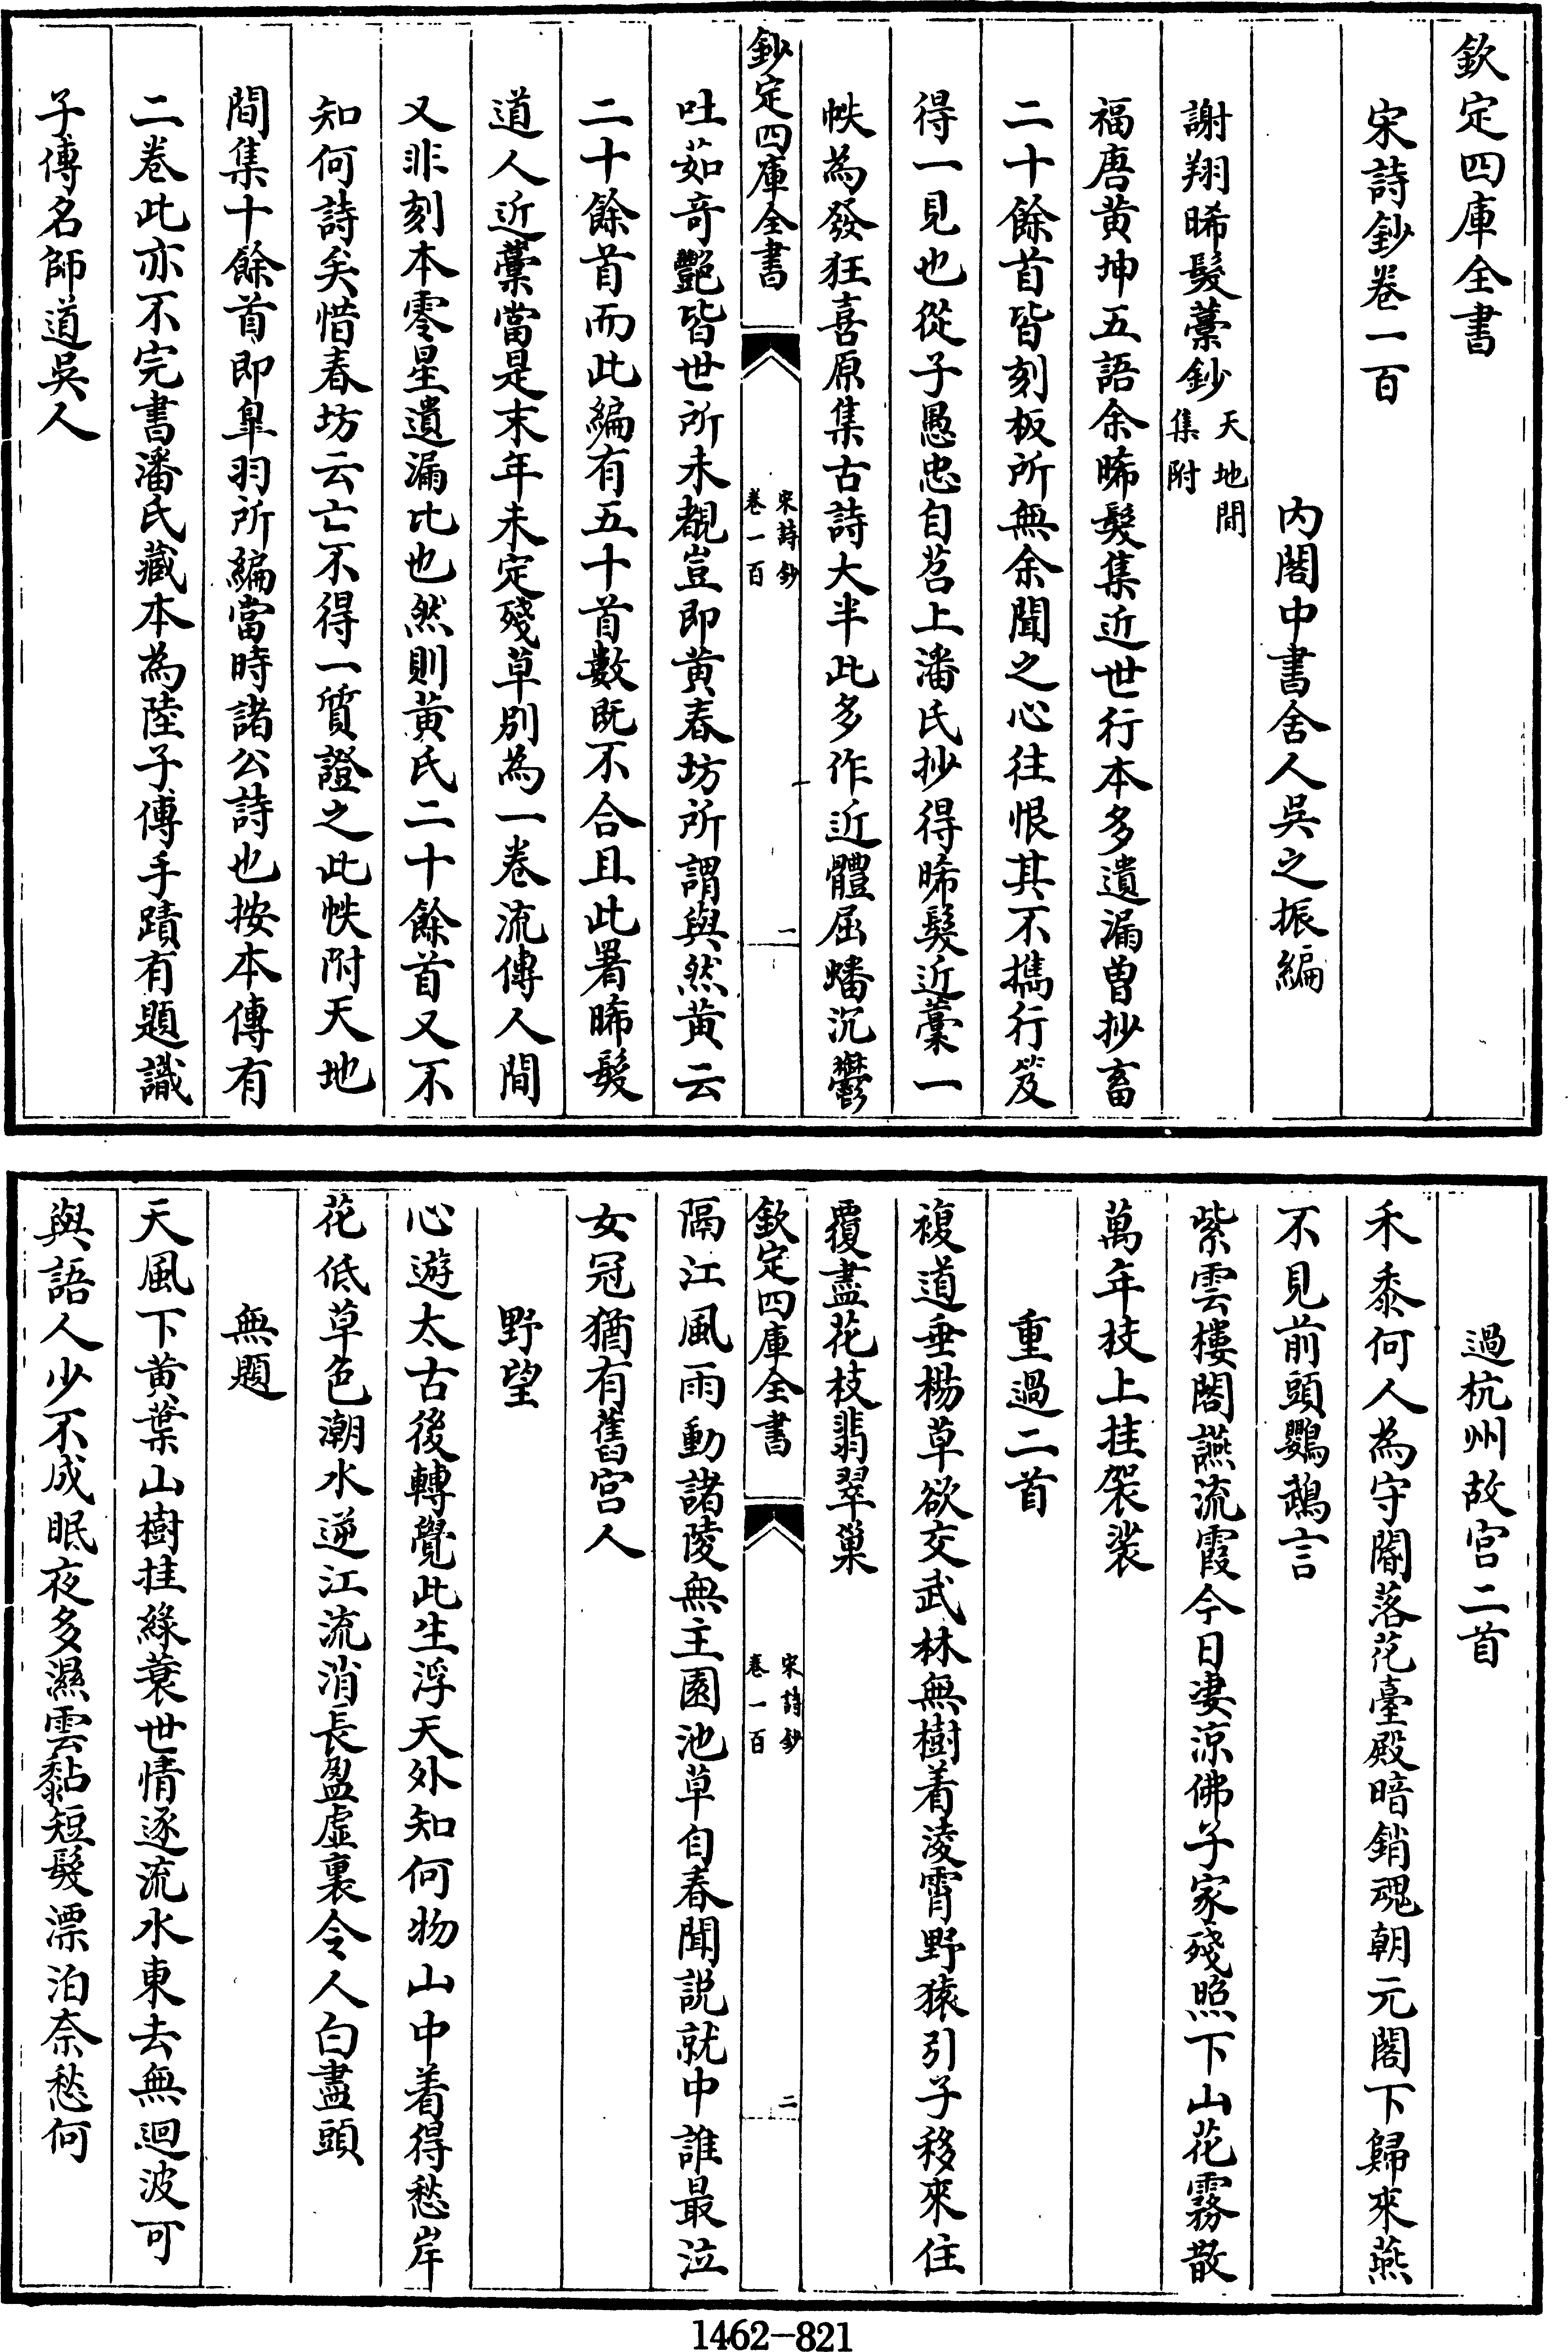 欽定四庫全書
宋詩鈔卷一百
內閣中書舍人吳之振編
謝翔晞髮藁鈔天地間
集附
福唐黃坤五語余晞髮集近世行本多遺漏曽抄畜
二十餘首皆刻板所無余聞之心往恨其不擕行笈
得一見也從子愚忠自苕上潘氏抄得晞髮近藁一
帙為發狂喜原集古詩大半此多作近體屈蟠沉鬱
鈔定四庫全書
宋詩鈔
卷一百
一
吐茹奇艷皆世所未覩豈即黃春坊所謂與然黃云
二十餘首而此編有五十首數既不合且此署晞髮
道人近藁當是末年未定殘草別為一卷流傳人間
又非刻本零星遺漏比也然則黃氏二十餘首又不
知何詩矣惜春坊云亡不得一質證之此帙附天地
間集十餘首即臯羽所編當時諸公詩也按本傳有
二卷此亦不完書潘氏藏本為陸子傳手蹟有題識
子傳名師道吳人
過杭州故宮二首
禾黍何人為守閽落花臺殿暗銷魂朝元閣下歸來燕
不見前頭鸚鵡言
紫雲樓閣讌流霞今日淒涼佛子家殘照下山花霧散
萬年枝上挂袈裟
重過二首
複道垂楊草欲交武林無樹着淩霄野猿引子移來住
覆盡花枝翡翠巢
欽定四庫全書
宋詩鈔
卷一百
二
隔江風雨動諸陵無主園池草自春聞説就中誰最泣
女冠猶有舊宮人
野望
心遊太古後轉覺此生浮天外知何物山中着得愁岸
花低草色潮水逆江流消長盈虛裏令人白盡頭
無題
天風下黃葉山樹挂綠蓑世情逐流水東去無迴波可
與語人少不成眠夜多濕雲黏短髮漂泊奈愁何
1462-821